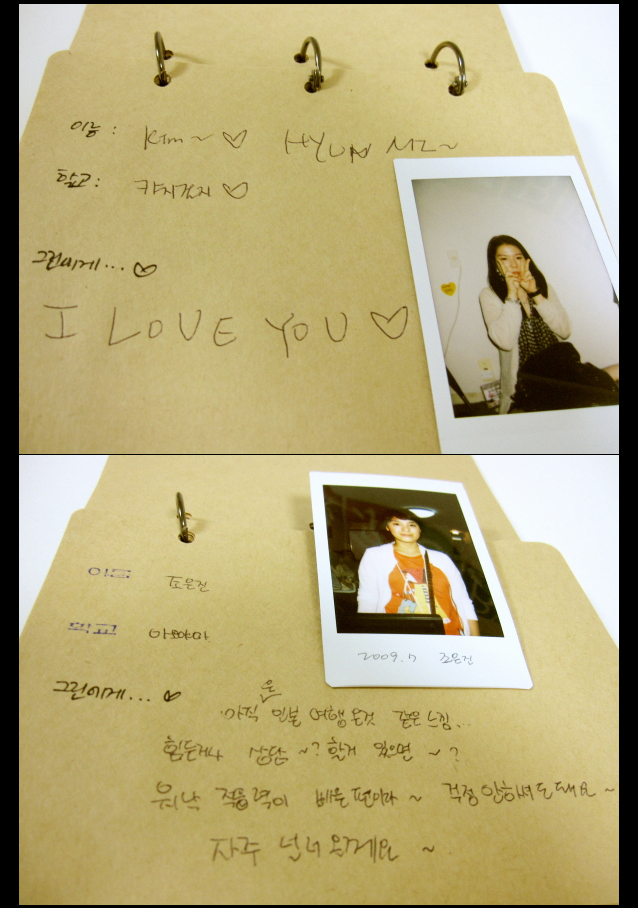 이름 : Kim ~ ♡ HYUN MI ~
학교 : 카지관지 ♡
그린이에게... ♡
I LOVE YOU ♡
이름 조은진
학교 아야마
2009.7 조은진
그린이에게... ♡
은
아직 일본 여행온것 같은 느낌...
힘든거나 상담 ~? 할거 있으면 ~?
워낙 적응력이 빠른편이라 ~ 걱정 안하셔도 돼요 ~
자주 놀러 올게요 ~